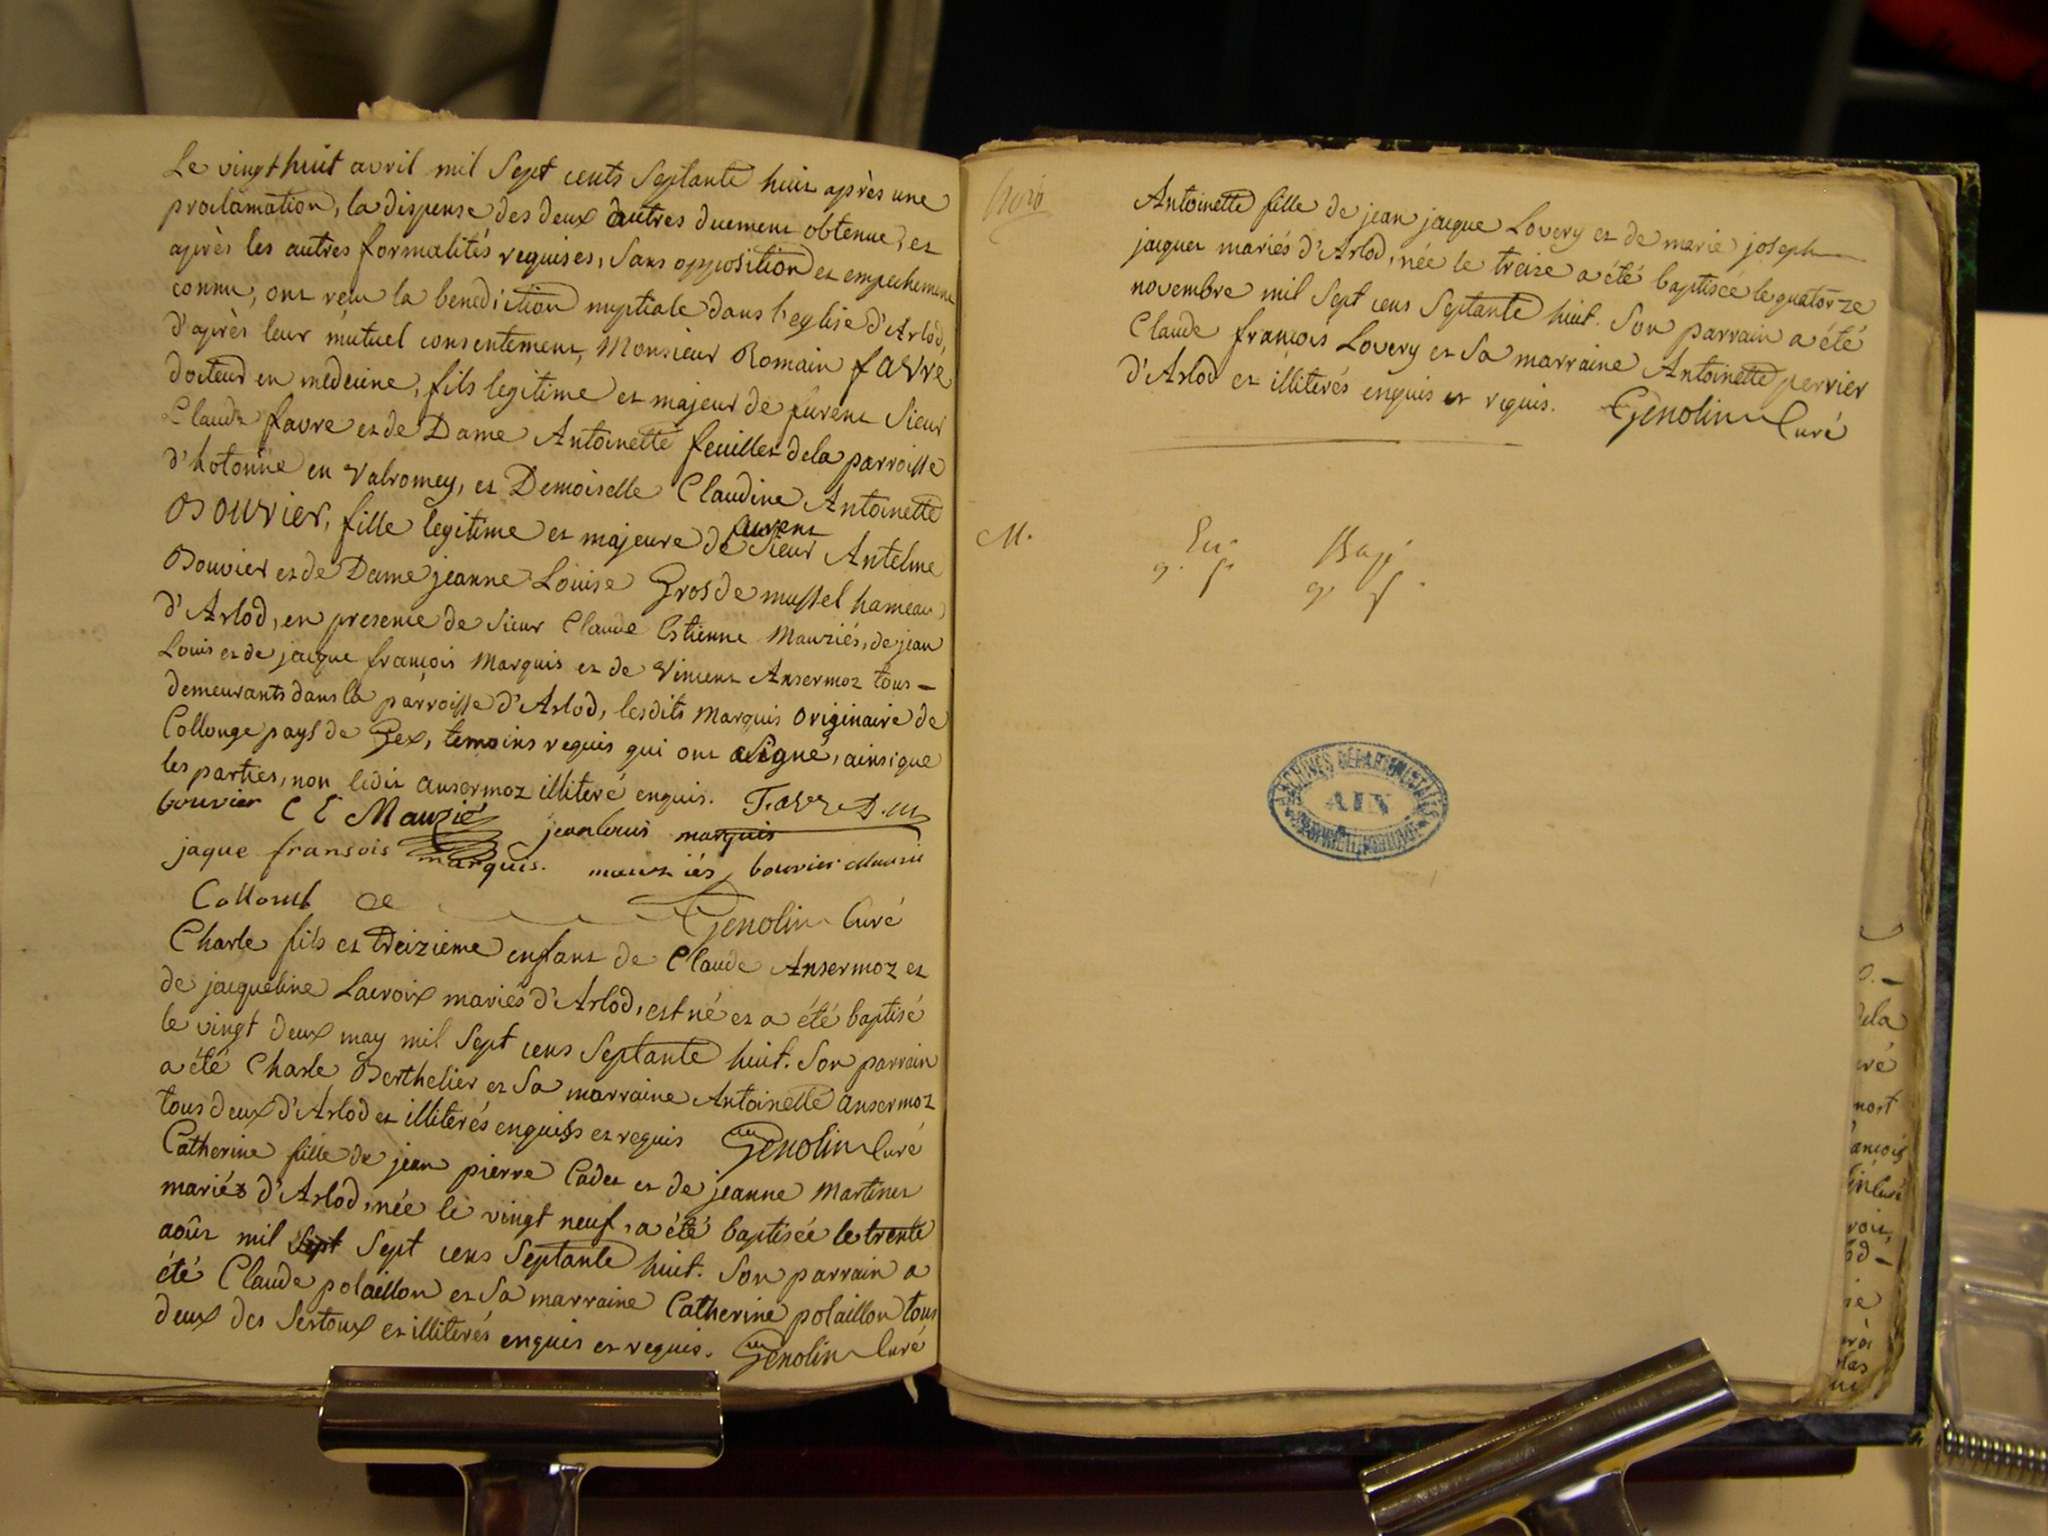 Le vingt huit avril mil Sept cents Septante huit après une
proclamation, la dispense des deux autres duement obtenue, et
après les autres formalités requises, Sans opposition et empechement
connu, ont reçu la benediction nuptiale dans l'eglise d'Arlod,
d'après leur mutuel consentement, Monsieur Romain favre
docteur en medecine, fils legitime et majeur de furent Sieur
Claude favre et de Dame Antoinette feuillet dela parroisse
d'hotonne en Valromey, et Demoiselle Claudine Antoinette
Bouvier, fille legitime et majeure de furent Sieur Antelme
Bouvier et de Dame jeanne Louise Gros de mussel hameau
d'Arlod, en presence de Sieur Claude Estienne Mauziés, de jean
Louis et de jacque françois Marquis et de Vincent Ansermoz tous
demeurants dans la parroisse d'Arlod, lesdits Marquis originaire de
Collonge pays de Gex, temoins requis qui ont Signé, ainsi que
les parties, non ledit ansermoz illiteré enquis. Favre D. m
bouvier C E Mauzié jean louis marquis
jaque fransois marquis. mauziés bouvier
Genolin Curé
Charle fils et treizieme enfant de Claude Ansermoz et
de jacqueline Lacroix mariés d'Arlod, est né et a été baptisé
le vingt deux may mil Sept cens Septante huit. Son parrain
a été Charle Berthelier et Sa marraine Antoinette ansermoz
tous deux d'Arlod et illiterés enquis et requis Genolin Curé
Catherine fille de jean pierre Cadet et de jeanne Martinet
mariés d'Arlod, née le vingt neuf, a été baptisée le trente
août mil Sept Sept cens Septante huit. Son parrain a
été Claude polaillon et Sa marraine Catherine polaillon tous
deux des Sertoux et illiterés enquis et requis. Genolin Curé
Antoinette fille de jean jacque Lovery et de marie joseph
jacquet mariés d'Arlod, née le treize a été baptisée le quatorze
novembre mil Sept cens Septante huit. Son parrain a été
Claude françois Lovery et Sa marraine Antoinette perrier
d'Arlod et illiterés enquis et requis. Genolin Curé
M.
g. f. g. f.
ARCHIVES DÉPARTEMENTALES
AIN
dela
mort
ançois